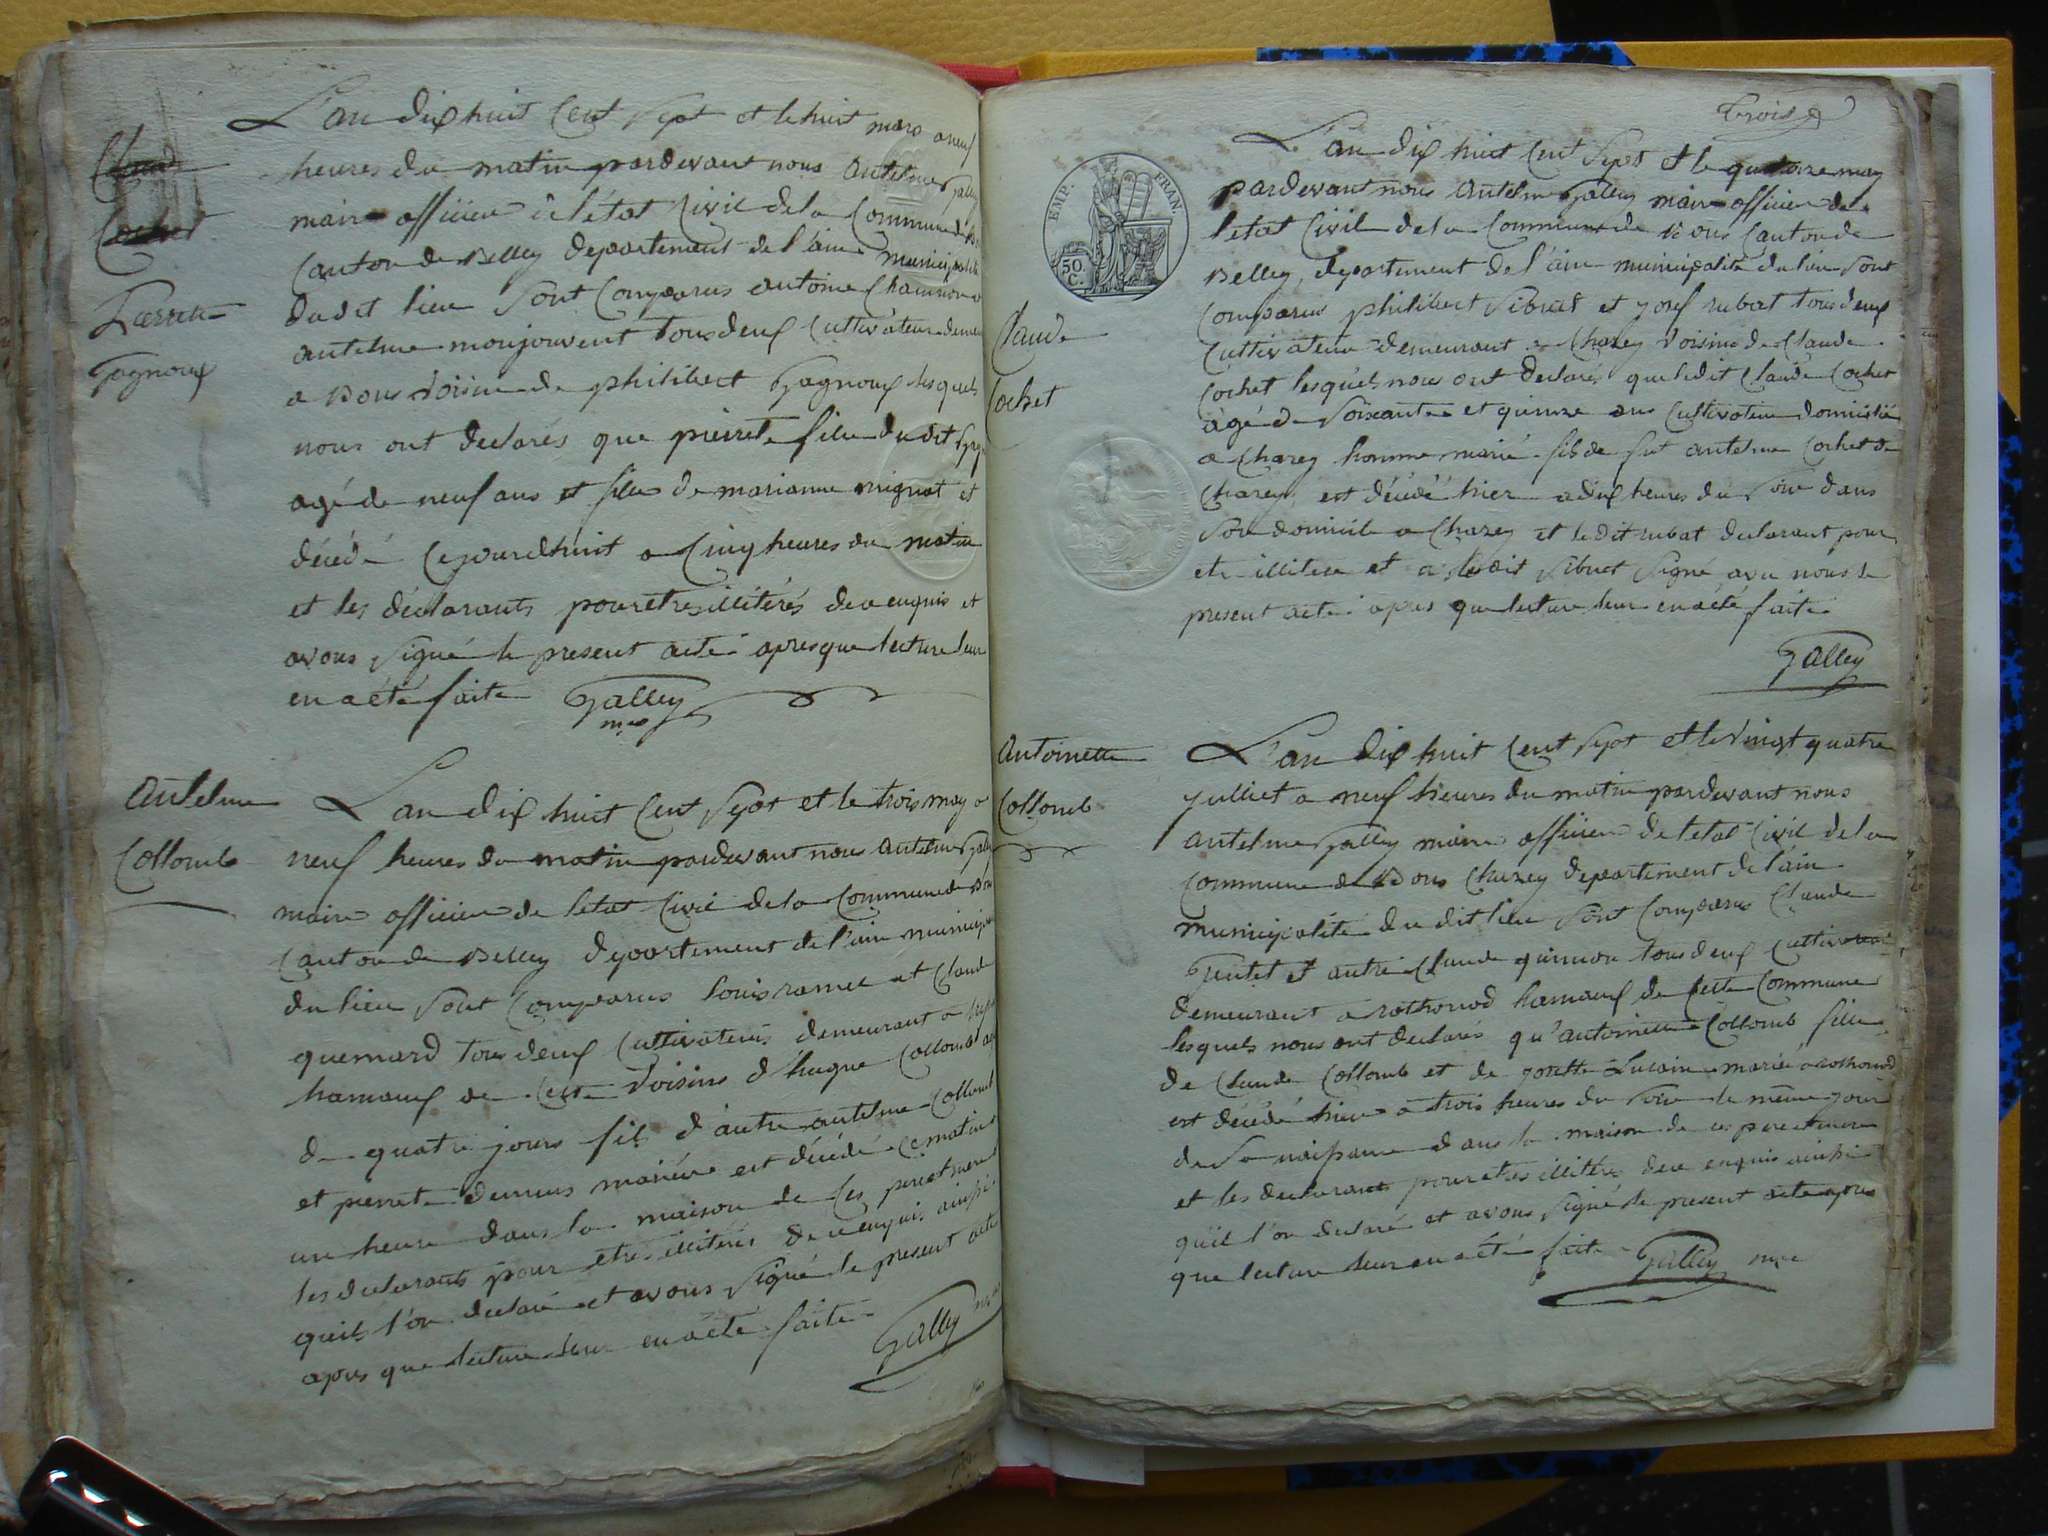 L'an dix huit cent sept et le huit mars a neuf
Claude
heures du matin pardevant nous antelme Galley
Cochet
maire officier de l'état civil de la commune de
Canton de Belley departement de l'ain municipalité
Pierrette
Gagnoux
dudit lieu sont comparus antoine
antelme monjouvent tous deux cultivateurs
a Bons voisins de philibert Gagnoux lesquels
nous ont declarés que pierrete fille du dit
agé de neuf ans et fille de marianne mignot et
décédé cejourdhuit a cinq heures du matin
et les déclarants pour etres illitérés de ce enquis et
avons signé le present acte apres que lecture leur
en a été faite Galley
mre
Antelme
Collomb
L'an dix huit cent sept et le trois may a
neuf heures du matin pardevant nous antelme Galley
maire officier de letat civil de la commune de Bons
canton de Belley departement de l'ain
du lieu sont comparus louis ramel et Claude
quemard tous deux cultivateurs demeurant a
hamaux de cette voisins d'hugue Collomb
de quatre jours fils d'autre antelme Collomb
et pierrete mariés est décédé ce matin a
un heure dans la maison de ces pere et mere
les declarants pour etres illitérés de ce enquis ainsi
quils l'on declaré et avons signé le present acte
apres que lecture leur en a été faite
Galley
trois
EMP. FRAN.
50 C.
Claude
Cochet
L'an dix huit cent sept et le quatorze may
pardevant nous antelme Galley maire officier de
letat civil de la commune de Bons canton de
Belley, departement de l'ain municipalité du lieu sont
comparus philibert Sibuet et josef rubat tous deux
cultivateur demeurant a Chazey voisins de Claude
Cochet lesquels nous ont declarés que ledit Claude Cochet
agé de soixante et quinze ans cultivateur domicilié
a Chazey homme marié fils de fut antelme Cochet de
Chazey est décédé hier a dix heures du soir dans
son domicile a Chazey et le dit rubat declarant pour
etre illitere et a ledit Sibuet signé avec nous le
present acte apres que lecture leur en a été faite
Galley
Antoinette
Collomb
L'an dix huit cent sept et le vingt quatre
julliet a neuf heures du matin pardevant nous
antelme Galley maire officier de letat civil de la
commune de Bons Chazey departement de l'ain
municipalité du dit lieu sont comparus Claude
et autre Claude tous deux
demeurant a rothonod hamaux de cette commune
lesquels nous ont declarés qu'antoinette Collomb fille
de Claude Collomb et de josette mariés a rothonod
est décédé hier a trois heures du soir le même jour
de sa naissance dans la maison de ces pere et mere
et les declarants pour etres illitérés de ce enquis ainsi
quil l'on declaré et avons signé le present acte apres
que lecture leur en a été faite Galley mre